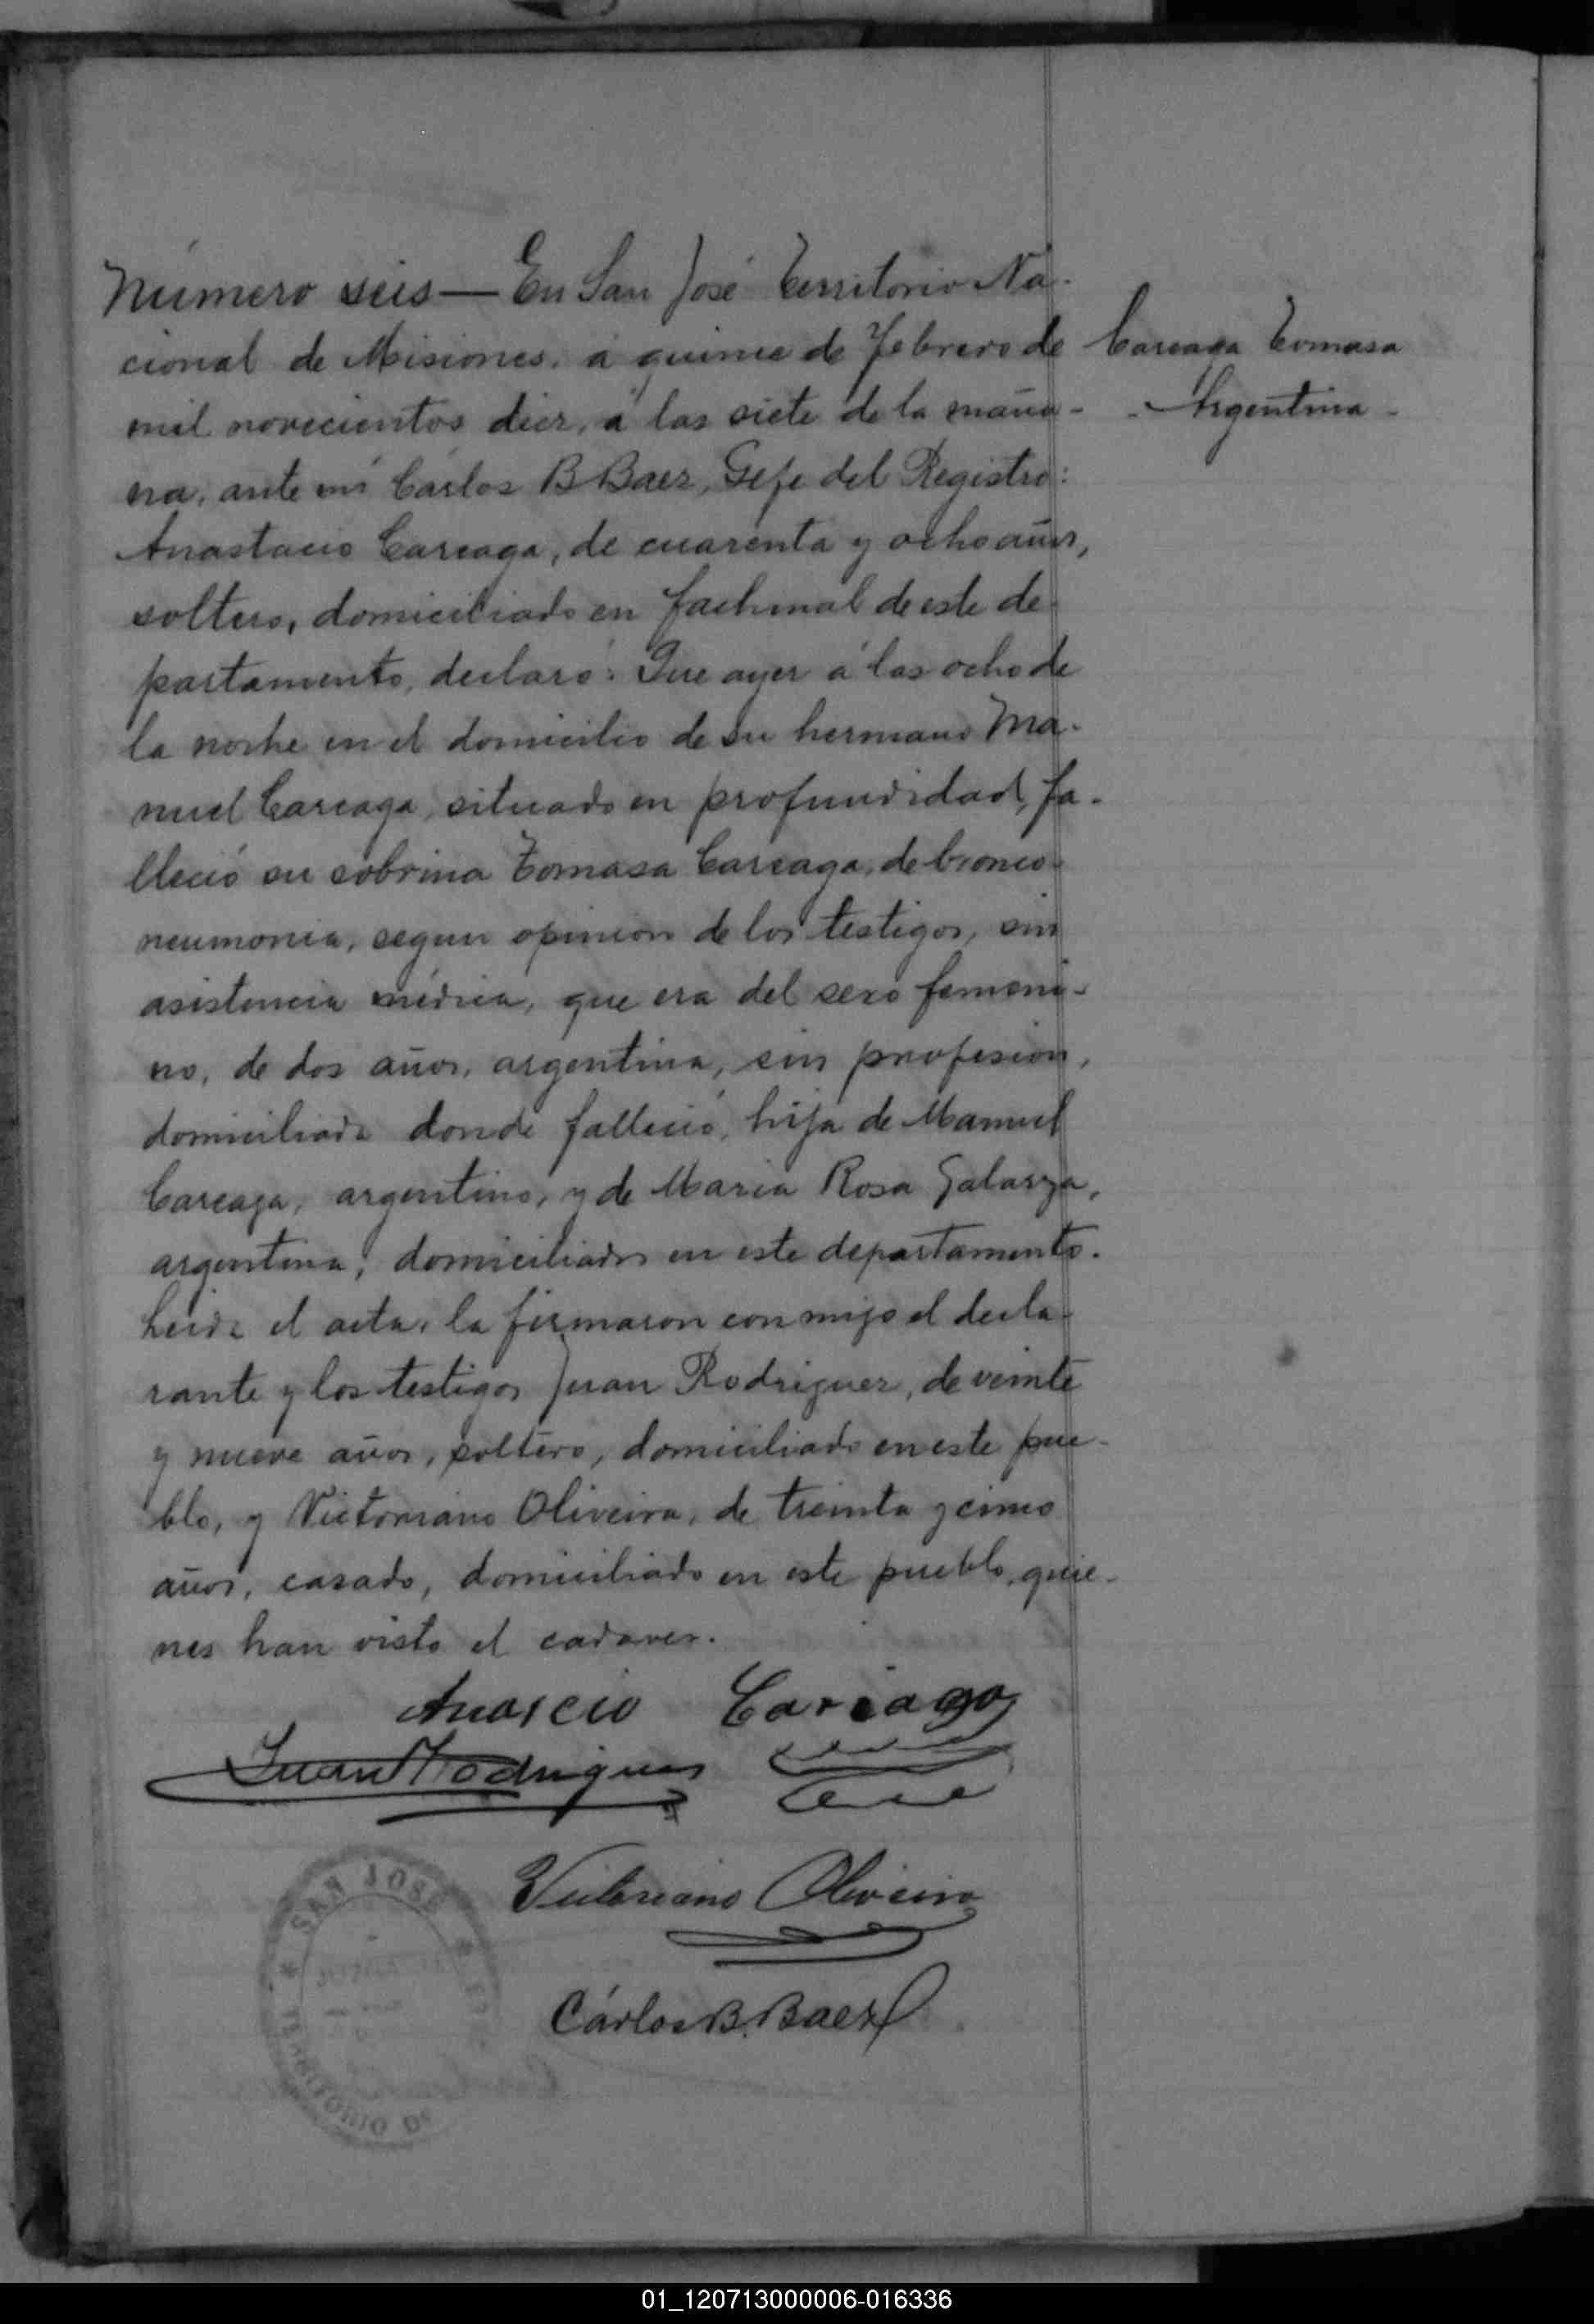 Número seis — En San José Territorio Na-
cional de Misiones, á quince de Febrero de
mil novecientos diez, á las siete de la maña-
na, ante mí Cárlos B Baez, Gefe del Registro:
Anastacio Careaga, de cuarenta y ocho años,
soltero, domiciliado en fachinal de este de-
partamento, declaró: Que ayer á las ocho de
la noche en el domicilio de su hermano Ma-
nuel Careaga, situado en profundidad, fa-
lleció su sobrina Tomasa Careaga, de bronco-
neumonia, segun opinion de los testigos, sin
asistencia médica, que era del sexo femeni-
no, de dos años, argentina, sin profesion,
domiciliada donde falleció, hija de Manuel
Careaga, argentino, y de Maria Rosa Galarza,
argentina, domiciliados en este departamento.
Leida el acta, la firmaron conmigo el decla-
rante y los testigos Juan Rodriguez, de veinte
y nueve años, soltero, domiciliado en este pue-
blo, y Victoriano Oliveira, de treinta y cinco
años, casado, domiciliado en este pueblo, quie-
nes han visto el cadaver.
Careaga Tomasa
- Argentina -
Anascio Cariaga
Juan Rodriguez
Victoriano Oliveira
Cárlos B. Baez
SAN JOSÉ
TERRITORIO DE
01_120713000006-016336